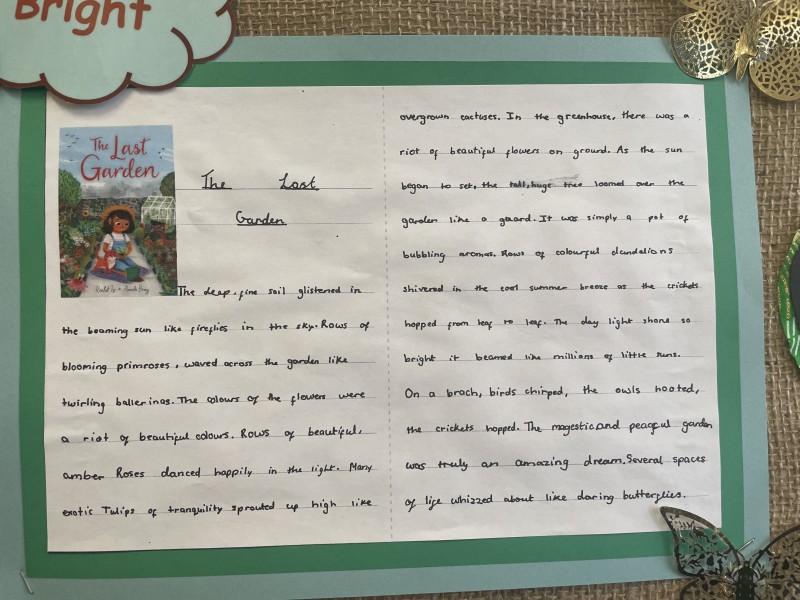 Bright
The Last
Garden
The Last
Garden
The deep, fine soil glistened in
the beaming sun like fireflies in the sky. Rows of
blooming primroses, waved across the garden like
twirling ballerinas. The colours of the flowers were
a riot of beautiful colours. Rows of beautiful,
amber Roses danced happily in the light. Many
exotic Tulips of tranquility sprouted up high like
overgrown cactuses. In the greenhouse, there was a
riot of beautiful flowers on ground. As the sun
began to set, the tall, huge tree loomed over the
garden like a gaard. It was simply a pot of
bubbling aromas. Rows of colourful dandelions
shivered in the cool summer breeze as the crickets
hopped from leaf to leaf. The day light shone so
bright it beamed like millions of little suns.
On a brach, birds chirped, the owls hooted,
the crickets hopped. The magestic and peaceful garden
was truly an amazing dream. Several spaces
of life whizzed about like daring butterflies.